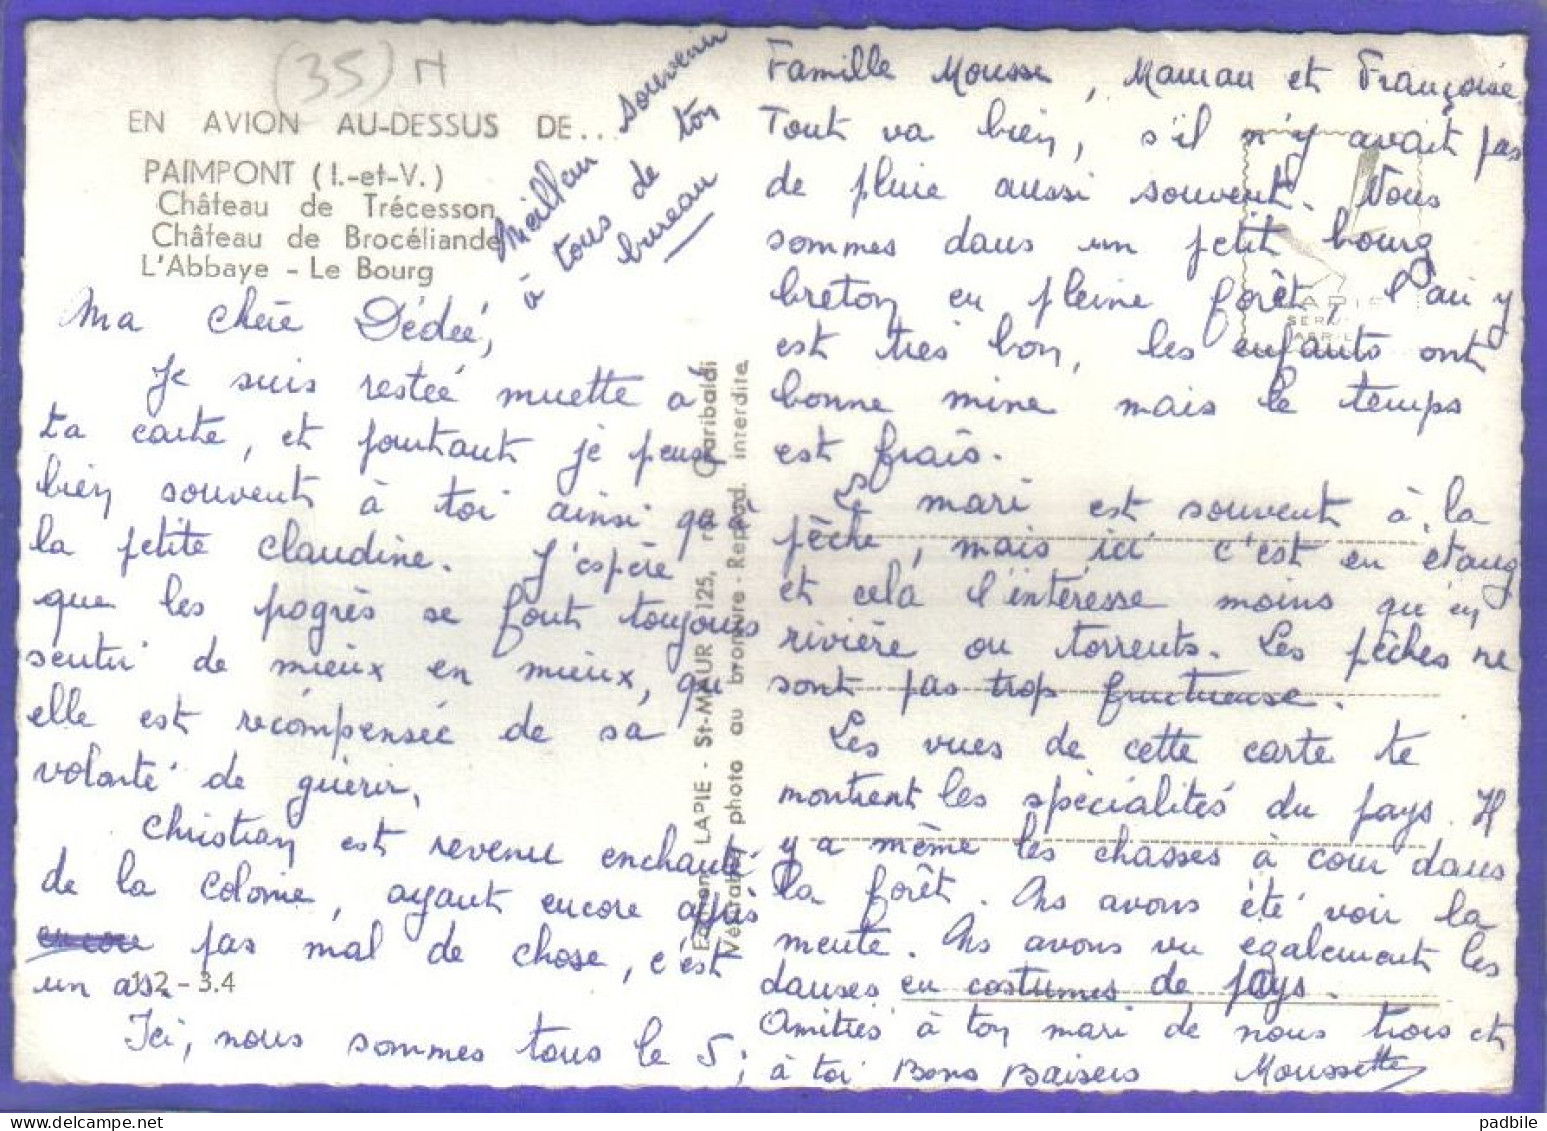 (35) H
EN AVION AU-DESSUS DE...
PAIMPONT (I.-et-V.)
Château de Trécesson
Château de Brocéliande
L'Abbaye - Le Bourg
Meilleur souvenir
à tous de ton
bureau
Ma chère Dédée,
Je suis restée muette à
ta carte, et pourtant je pense
bien souvent à toi ainsi qu'à
la petite claudine. J'espère
que les pogrès se font toujours
sentir de mieux en mieux, qu'
elle est recompensée de sa
volonté de guérir,
Christian est revenu enchanté
de la colonie, ayant encore appris
encore pas mal de chose, c'est
un as.
1 2 - 3.4
Ici, nous sommes tous le 5 ;
Editions LAPIE - St-MAUR 125, rue Garibaldi
Véritable photo au bromure - Reprod. interdite.
Famille Mousse, Maman et Françoise
Tout va bien, s'il n'y avait pas
de pluie aussi souvent. Nous
sommes dans un petit bourg
breton en pleine forêt, l'air y
est très bon, les enfants ont
bonne mine mais le temps
est frais.
Le mari est souvent à la
pêche, mais ici c'est en étang
et celà l'intéresse moins qu'en
rivière ou torrents. Les pêches ne
sont pas trop fructueuse.
Les vues de cette carte te
montrent les spécialités du pays. Il
y a même les chasses à cour dans
la forêt. Ns avons été voir la
meute. Ns avons vu egalement les
danses en costumes de pays.
Amitiés à ton mari de nous trois et
à toi Bons Baisers Moussette
LAPIE
SERV
padbile